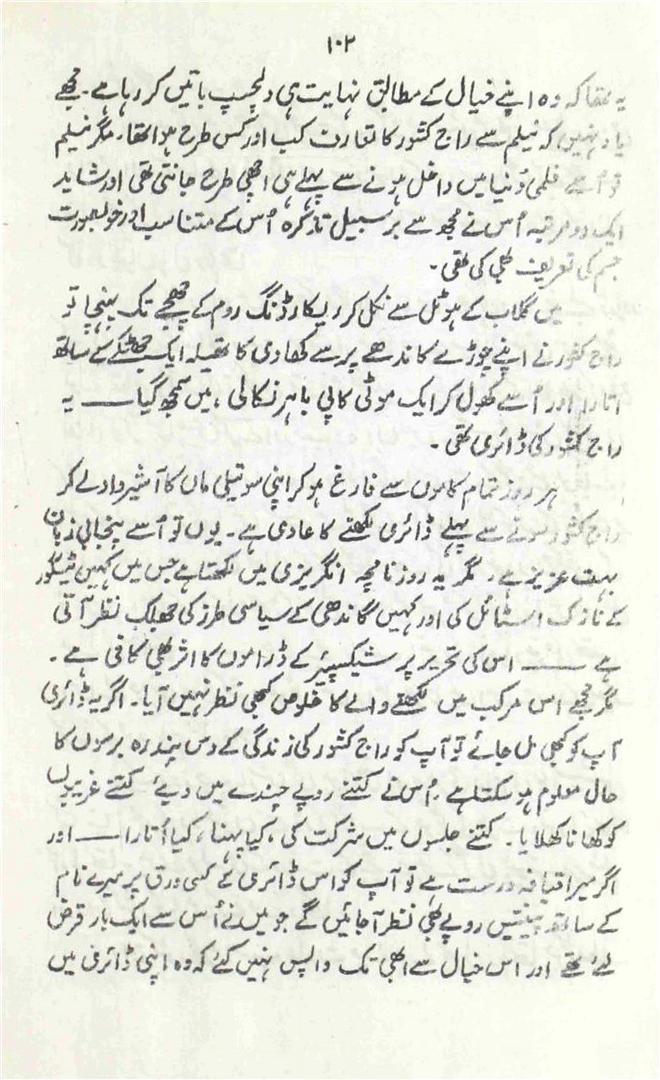 ۱۰۲
یہ تھا کہ وہ اپنے خیال کے مطابق نہایت ہی دلچسپ باتیں کر رہا ہے۔ مجھے
یاد نہیں کہ نیلم سے راج کشور کا تعارف کب اور کس طرح ہوا تھا۔ مگر نیلم
تو اُسے فلمی دُنیا میں داخل ہونے سے پہلے ہی اچھی طرح جانتی تھی اور شاید
ایک دو مرتبہ اُس نے مجھ سے برسبیل تذکرہ اُس کے متناسب اور خوبصورت
جسم کی تعریف بھی کی تھی۔
میں گلاب کے ہوٹل سے نکل کر ریکارڈنگ روم کے چھجے تک پہنچا تو
راج کشور نے اپنے چوڑے کاندھے پر سے کھادی کا تھیلہ ایک جھٹکے کے ساتھ
اتارا اور اُسے کھول کر ایک موٹی کاپی باہر نکالی، میں سمجھ گیا ــــ یہ
راج کشور کی ڈائری تھی۔
ہر روز تمام کاموں سے فارغ ہو کر اپنی سوتیلی ماں کا آشیرواد لے کر
راج کشور سونے سے پہلے ڈائری لکھنے کا عادی ہے۔ یوں تو اُسے پنجابی زبان
بہت عزیز ہے۔ مگر یہ روزنامچہ انگریزی میں لکھتا ہے جس میں کہیں ٹیگور
کے نازک اسٹائل کی اور کہیں گاندھی کے سیاسی طرز کی جھلک نظر آتی
ہے ــــ اس کی تحریر پر شیکسپیئر کے ڈراموں کا اثر بھی کافی ہے۔
مگر مجھے اس مرکب میں لکھنے والے کا خلوص کبھی نظر نہیں آیا۔ اگر یہ ڈائری
آپ کو کبھی مل جائے تو آپ کو راج کشور کی زندگی کے دس پندرہ برسوں کا
حال معلوم ہو سکتا ہے۔ اُس نے کتنے روپے چندے میں دیئے کتنے غریبوں
کو کھانا کھلایا۔ کتنے جلسوں میں شرکت کی، کیا پہنا، کیا اُتارا ــــ اور
اگر میرا قیافہ درست ہے تو آپ کو اس ڈائری کے کسی ورق پر میرے نام
کے ساتھ پینتیس روپے بھی نظر آجائیں گے جو میں نے اُس سے ایک بار قرض
لئے تھے اور اس خیال سے ابھی تک واپس نہیں کئے کہ وہ اپنی ڈائری میں